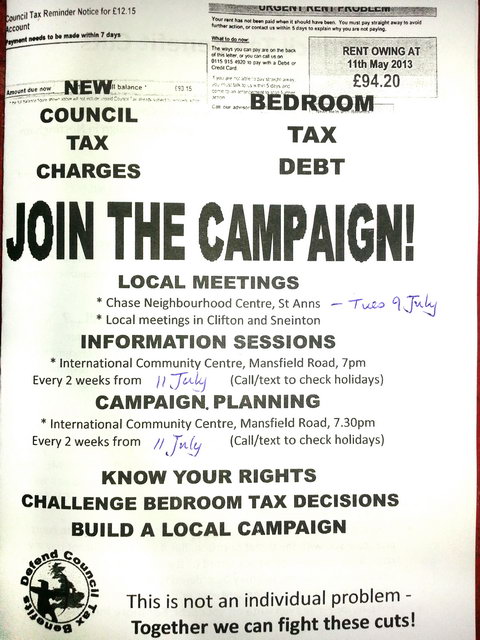 Council Tax Reminder Notice for £12.15
Account
Payment needs to be made within 7 days
Amount due now
ll balance *
£93.15
URGENT RENT PROBLEM
Your rent has not been paid when it should have been. You must pay straight away to avoid
further action, or contact us within 5 days to explain why you are not paying.
What to do now:
The ways you can pay are on the back
of this letter, or you can call us on
0115 915 4920 to pay with a Debit or
Credit Card.
If you are not able to pay straight away,
you must talk to us within 5 days and
RENT OWING AT
11th May 2013
£94.20
NEW
COUNCIL
TAX
CHARGES
BEDROOM
TAX
DEBT
JOIN THE CAMPAIGN!
LOCAL MEETINGS
* Chase Neighbourhood Centre, St Anns – Tues 9 July
* Local meetings in Clifton and Sneinton
INFORMATION SESSIONS
* International Community Centre, Mansfield Road, 7pm
Every 2 weeks from 11 July (Call/text to check holidays)
CAMPAIGN PLANNING
* International Community Centre, Mansfield Road, 7.30pm
Every 2 weeks from 11 July (Call/text to check holidays)
KNOW YOUR RIGHTS
CHALLENGE BEDROOM TAX DECISIONS
BUILD A LOCAL CAMPAIGN
Defend Council Tax Benefits
This is not an individual problem -
Together we can fight these cuts!